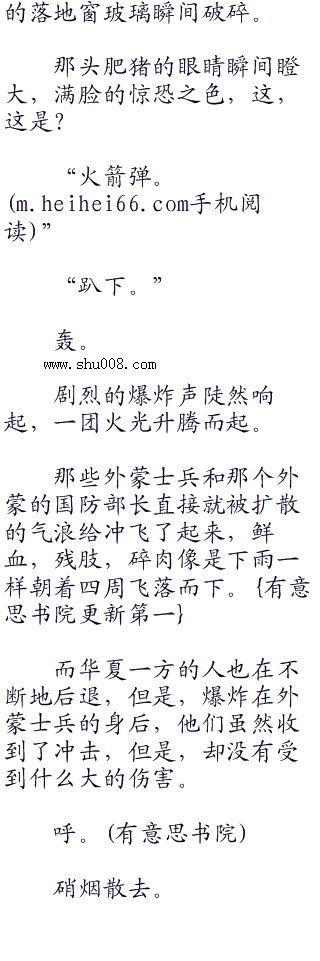 的落地窗玻璃瞬间破碎。
那头肥猪的眼睛瞬间瞪
大，满脸的惊恐之色，这，
这是？
“火箭弹。
(m.heihei66.com手机阅
读)”
“趴下。”
轰。
www.shu008.com
剧烈的爆炸声陡然响
起，一团火光升腾而起。
那些外蒙士兵和那个外
蒙的国防部长直接就被扩散
的气浪给冲飞了起来，鲜
血，残肢，碎肉像是下雨一
样朝着四周飞落而下。{有意
思书院更新第一}
而华夏一方的人也在不
断地后退，但是，爆炸在外
蒙士兵的身后，他们虽然收
到了冲击，但是，却没有受
到什么大的伤害。
呼。(有意思书院)
硝烟散去。